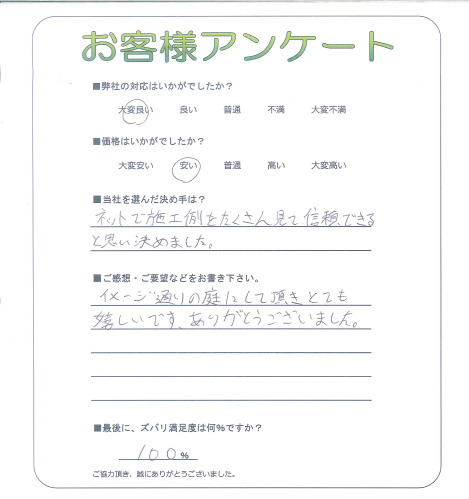 お客様アンケート
■弊社の対応はいかがでしたか？
大変良い 良い 普通 不満 大変不満
■価格はいかがでしたか？
大変安い 安い 普通 高い 大変高い
■当社を選んだ決め手は？
ネットで施工例をたくさん見て信頼できる
と思い決めました。
■ご感想・ご要望などをお書き下さい。
イメージ通りの庭にして頂きとても
嬉しいです、ありがとうございました。
■最後に、ズバリ満足度は何%ですか？
100%
ご協力頂き、誠にありがとうございました。